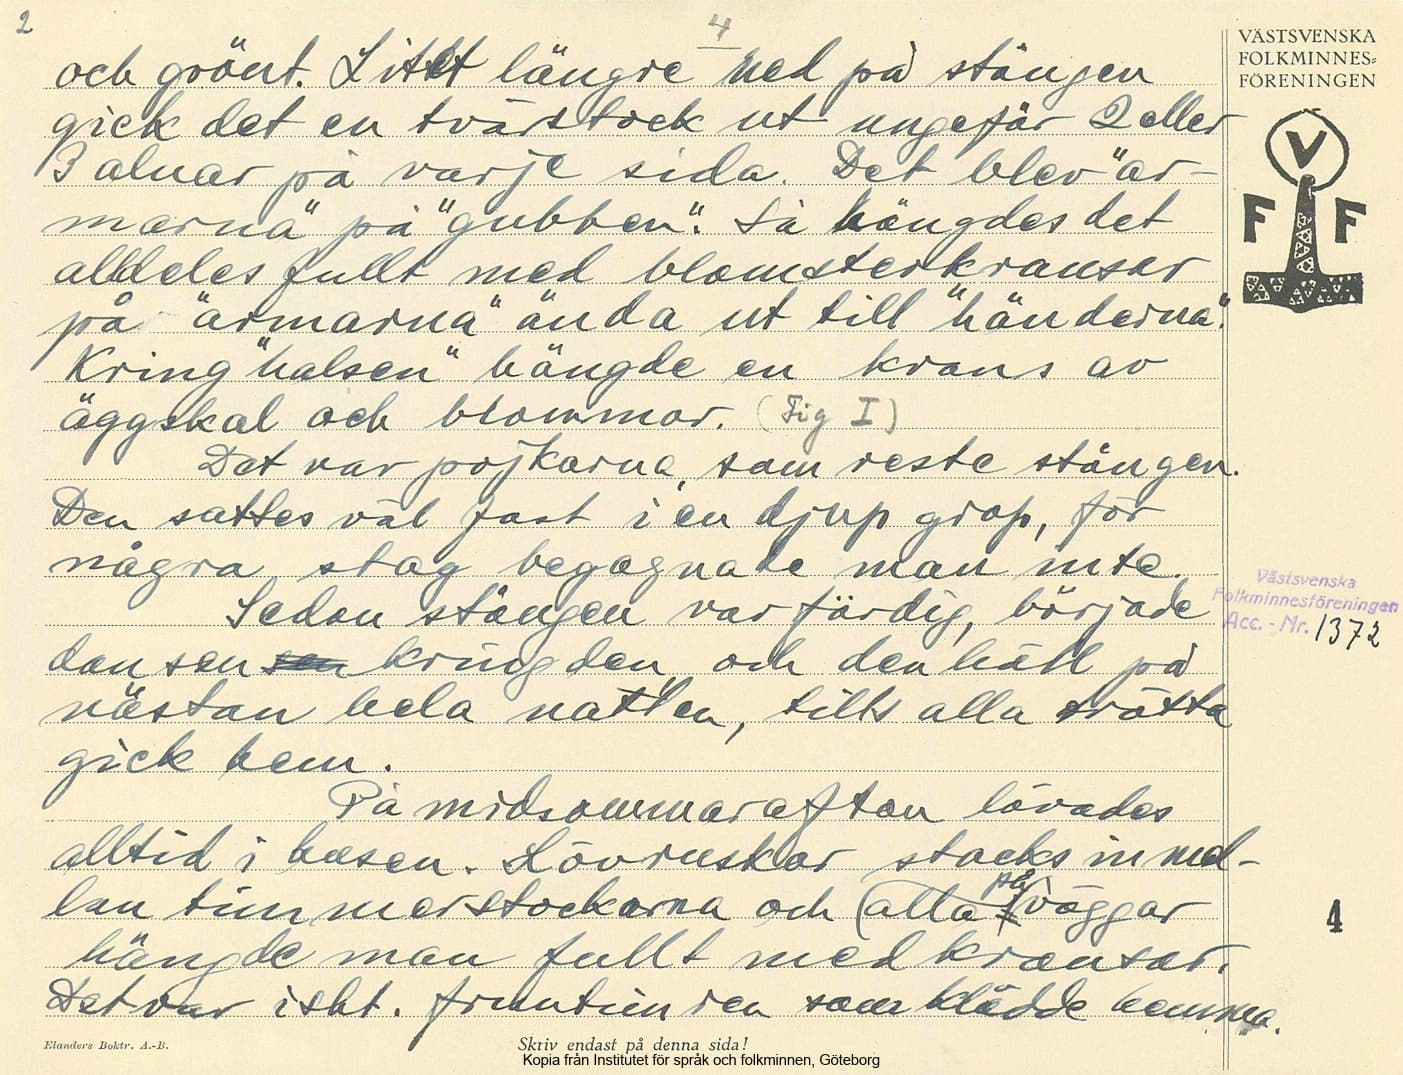 2
4
VÄSTSVENSKA
FOLKMINNES=
FÖRENINGEN
V
F F
och grönt. Litet längre ned på stången
gick det en tvärstock ut ungefär 2 eller
3 alnar på varje sida. Det blev "är-
marna" på "gubben". Så hängdes det
alldeles fullt med blomsterkransar
på "ärmarna" ända ut till "händerna".
Kring "halsen" hängde en krans av
äggskal och blommor. (Fig I)
Det var pojkarna, som reste stången.
Den sattes väl fast i en djup grop, för
några stag begagnade man inte.
Sedan stången var färdig, började
dansen kring den och den höll på
nästan hela natten, tills alla trötta
gick hem.
På midsommarafton lövades
alltid i husen. Lövruskor stacks in mel-
lan timmerstockarna och (alla på) väggar
hängde man fullt med kransar.
Det var isht. fruntimren som klädde hemma.
Västsvenska
Folkminnesföreningen
Acc. - Nr. 1372
4
Elanders Boktr. A.-B.
Skriv endast på denna sida!
Kopia från Institutet för språk och folkminnen, Göteborg